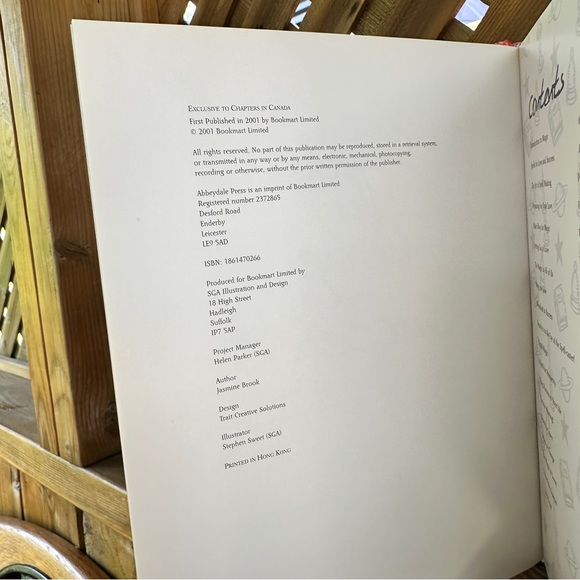 EXCLUSIVE TO CHAPTERS IN CANADA
First Published in 2001 by Bookmart Limited
© 2001 Bookmart Limited
All rights reserved. No part of this publication may be reproduced, stored in a retrieval system,
or transmitted in any way or by any means, electronic, mechanical, photocopying,
recording or otherwise, without the prior written permission of the publisher.
Abbeydale Press is an imprint of Bookmart Limited
Registered number 2372865
Desford Road
Enderby
Leicester
LE9 5AD
ISBN: 1861470266
Produced for Bookmart Limited by
SGA Illustration and Design
18 High Street
Hadleigh
Suffolk
IP7 5AP
Project Manager
Helen Parker (SGA)
Author
Jasmine Brook
Design
Trait Creative Solutions
Illustrator
Stephen Sweet (SGA)
PRINTED IN HONG KONG
Contents